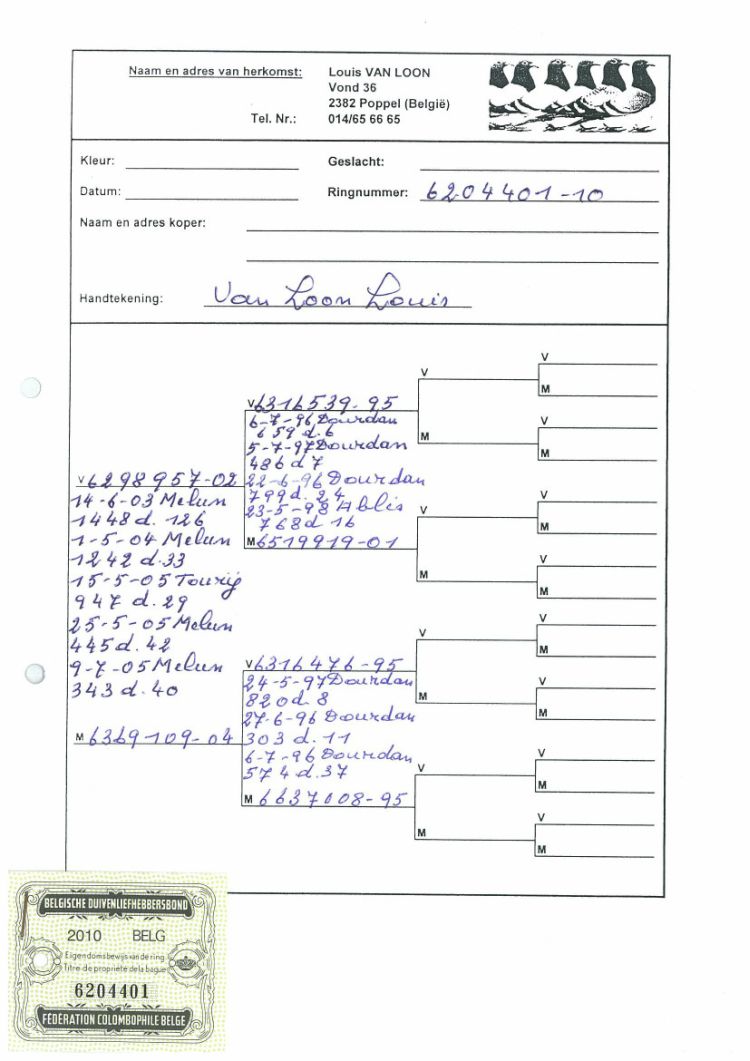 Naam en adres van herkomst: Louis VAN LOON
Vond 36
2382 Poppel (België)
Tel. Nr.: 014/65 66 65
Kleur: Geslacht:
Datum: Ringnummer: 6204401-10
Naam en adres koper:
Handtekening: Van Loon Louis
V 6298957-02
14-6-03 Melun
1448 d. 126
1-5-04 Melun
1242 d. 33
15-5-05 Toury
947 d. 29
25-5-05 Melun
445 d. 42
9-7-05 Melun
343 d. 40
M 6369109-04
V 6316539-95
6-7-96 Dourdan
659 d. 6
5-7-97 Dourdan
486 d 7
22-6-96 Dourdan
799 d. 24
23-5-98 Ablis
768 d 16
M 6519919-01
V 6316476-95
24-5-97 Dourdan
820 d. 8
27-6-96 Dourdan
303 d. 11
6-7-96 Dourdan
574 d. 37
M 6637008-95
V
M
V
M
V
M
V
M
V
M
V
M
V
M
V
M
V
M
V
M
V
M
V
M
BELGISCHE DUIVENLIEFHEBBERSBOND
2010 BELG
Eigendomsbewijs van de ring
Titre de propriété de la bague
6204401
FÉDÉRATION COLOMBOPHILE BELGE